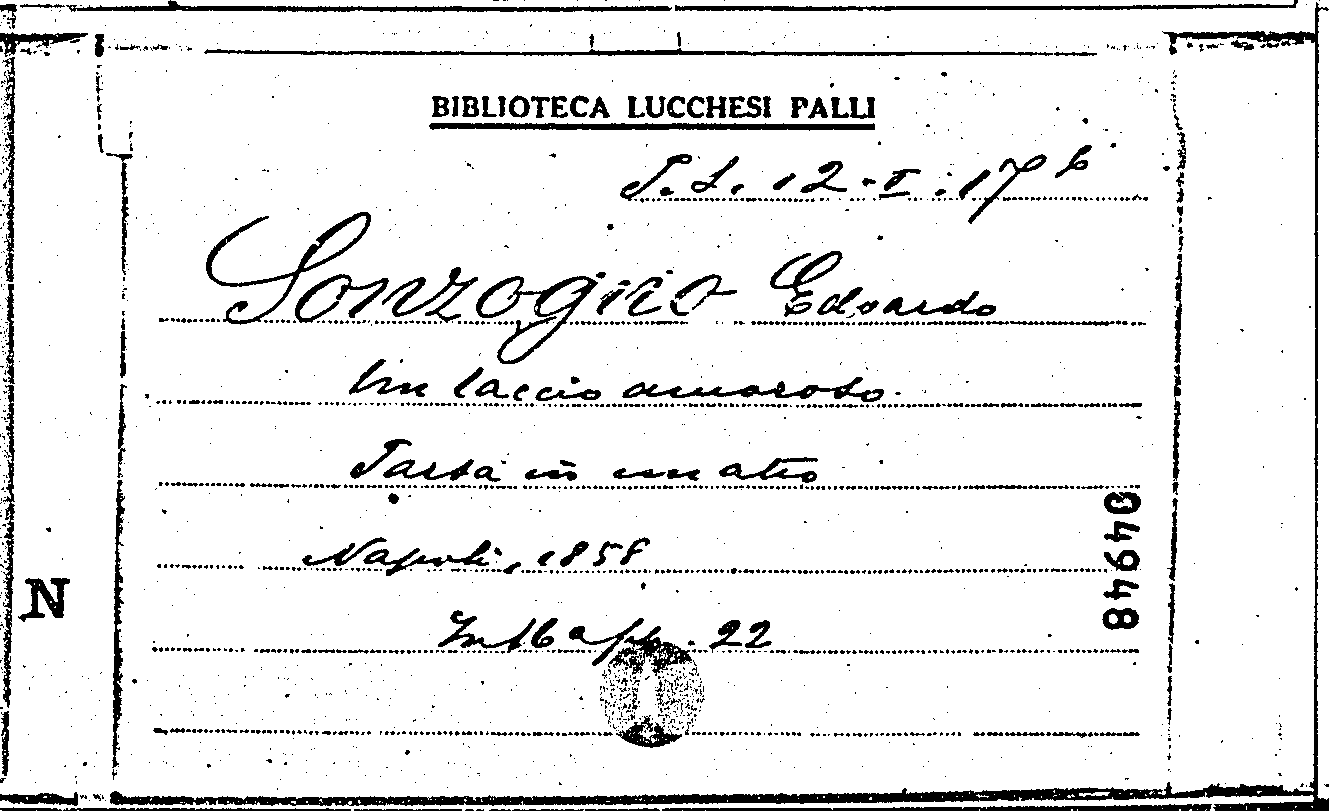 BIBLIOTECA LUCCHESI PALLI
12-I-17 b
Sonzogno Edoardo
Un laccio amoroso.
Farsa in un atto
Napoli, 1858
In 16 a pp. 22
04948
N